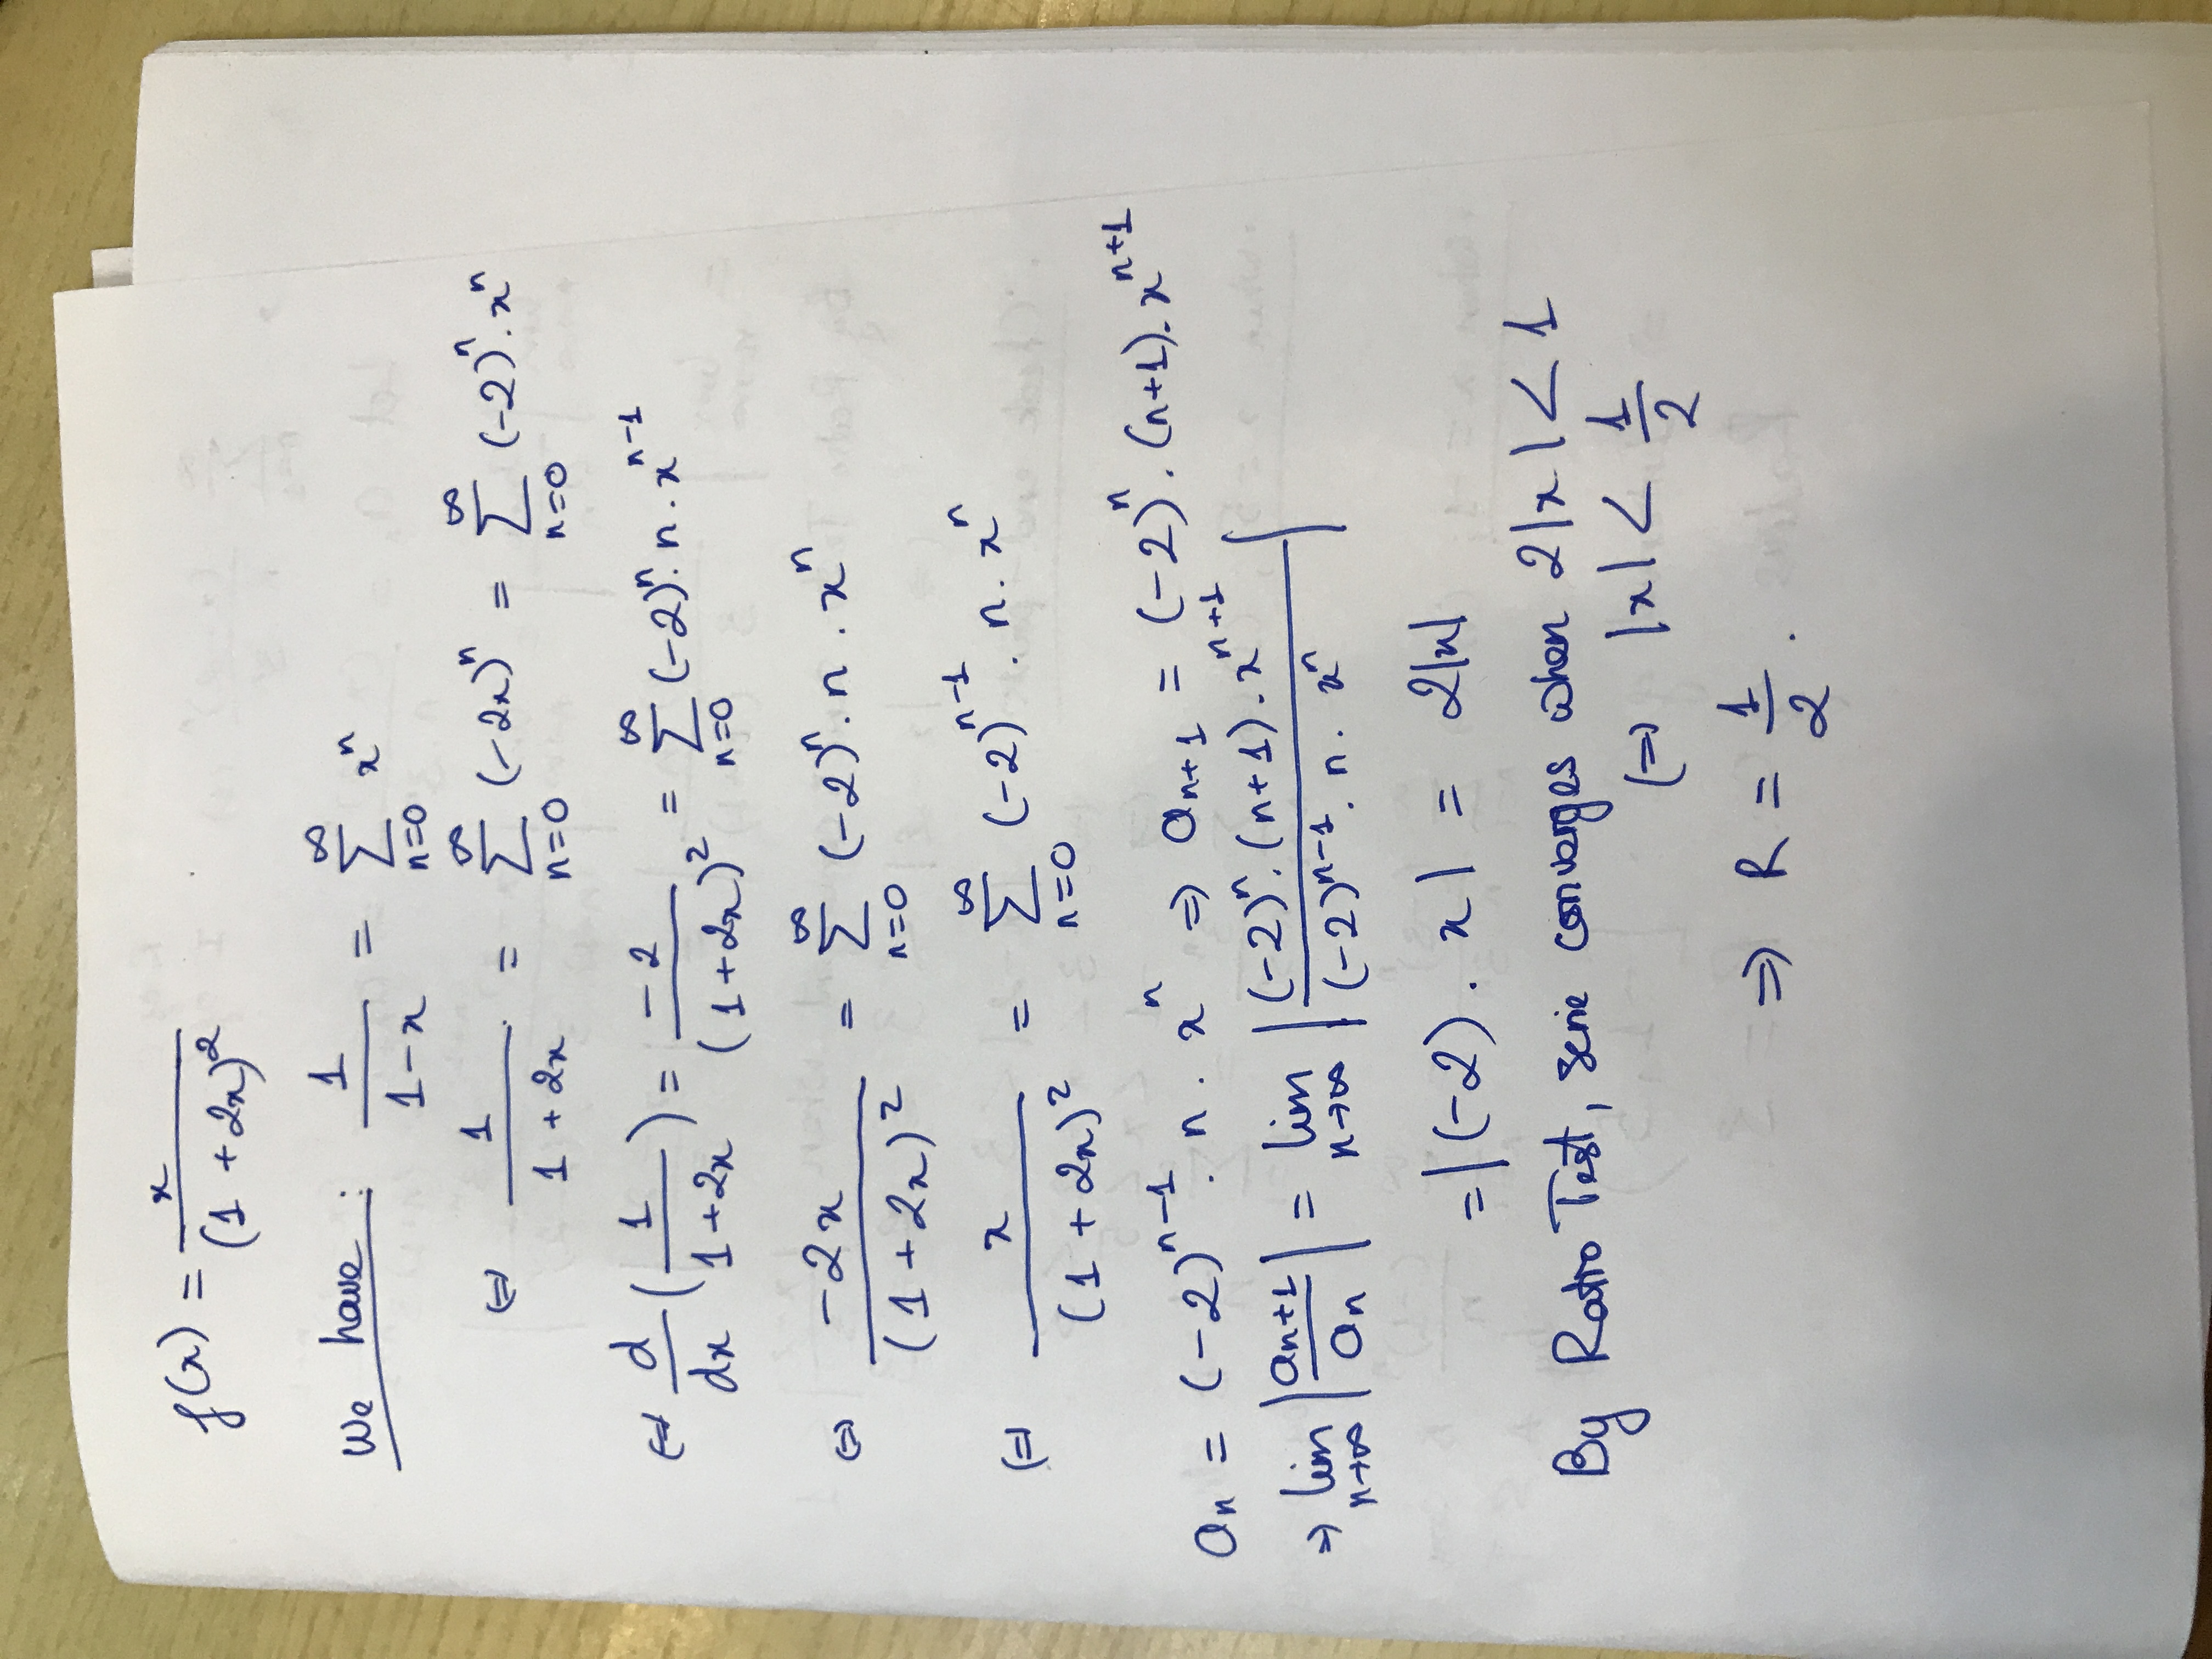 f(x) = x / (1 + 2x)²
We have : 1 / (1 - x) = ∑_{n=0}^{∞} xⁿ
⇔ 1 / (1 + 2x) = ∑_{n=0}^{∞} (-2x)ⁿ = ∑_{n=0}^{∞} (-2)ⁿ . xⁿ
⇔ d/dx (1 / (1 + 2x)) = -2 / (1 + 2x)² = ∑_{n=0}^{∞} (-2)ⁿ . n . xⁿ⁻¹
⇔ -2x / (1 + 2x)² = ∑_{n=0}^{∞} (-2)ⁿ . n . xⁿ
⇔ x / (1 + 2x)² = ∑_{n=0}^{∞} (-2)ⁿ⁻¹ . n . xⁿ
aₙ = (-2)ⁿ⁻¹ . n . xⁿ ⇒ aₙ₊₁ = (-2)ⁿ . (n+1) . xⁿ⁺¹
⇒ lim_{n→∞} | aₙ₊₁ / aₙ | = lim_{n→∞} | (-2)ⁿ . (n+1) . xⁿ⁺¹ / (-2)ⁿ⁻¹ . n . xⁿ |
= | (-2) . x | = 2|x|
By Ratio Test, serie converges when 2|x| < 1
⇔ |x| < 1/2
⇒ R = 1/2 .